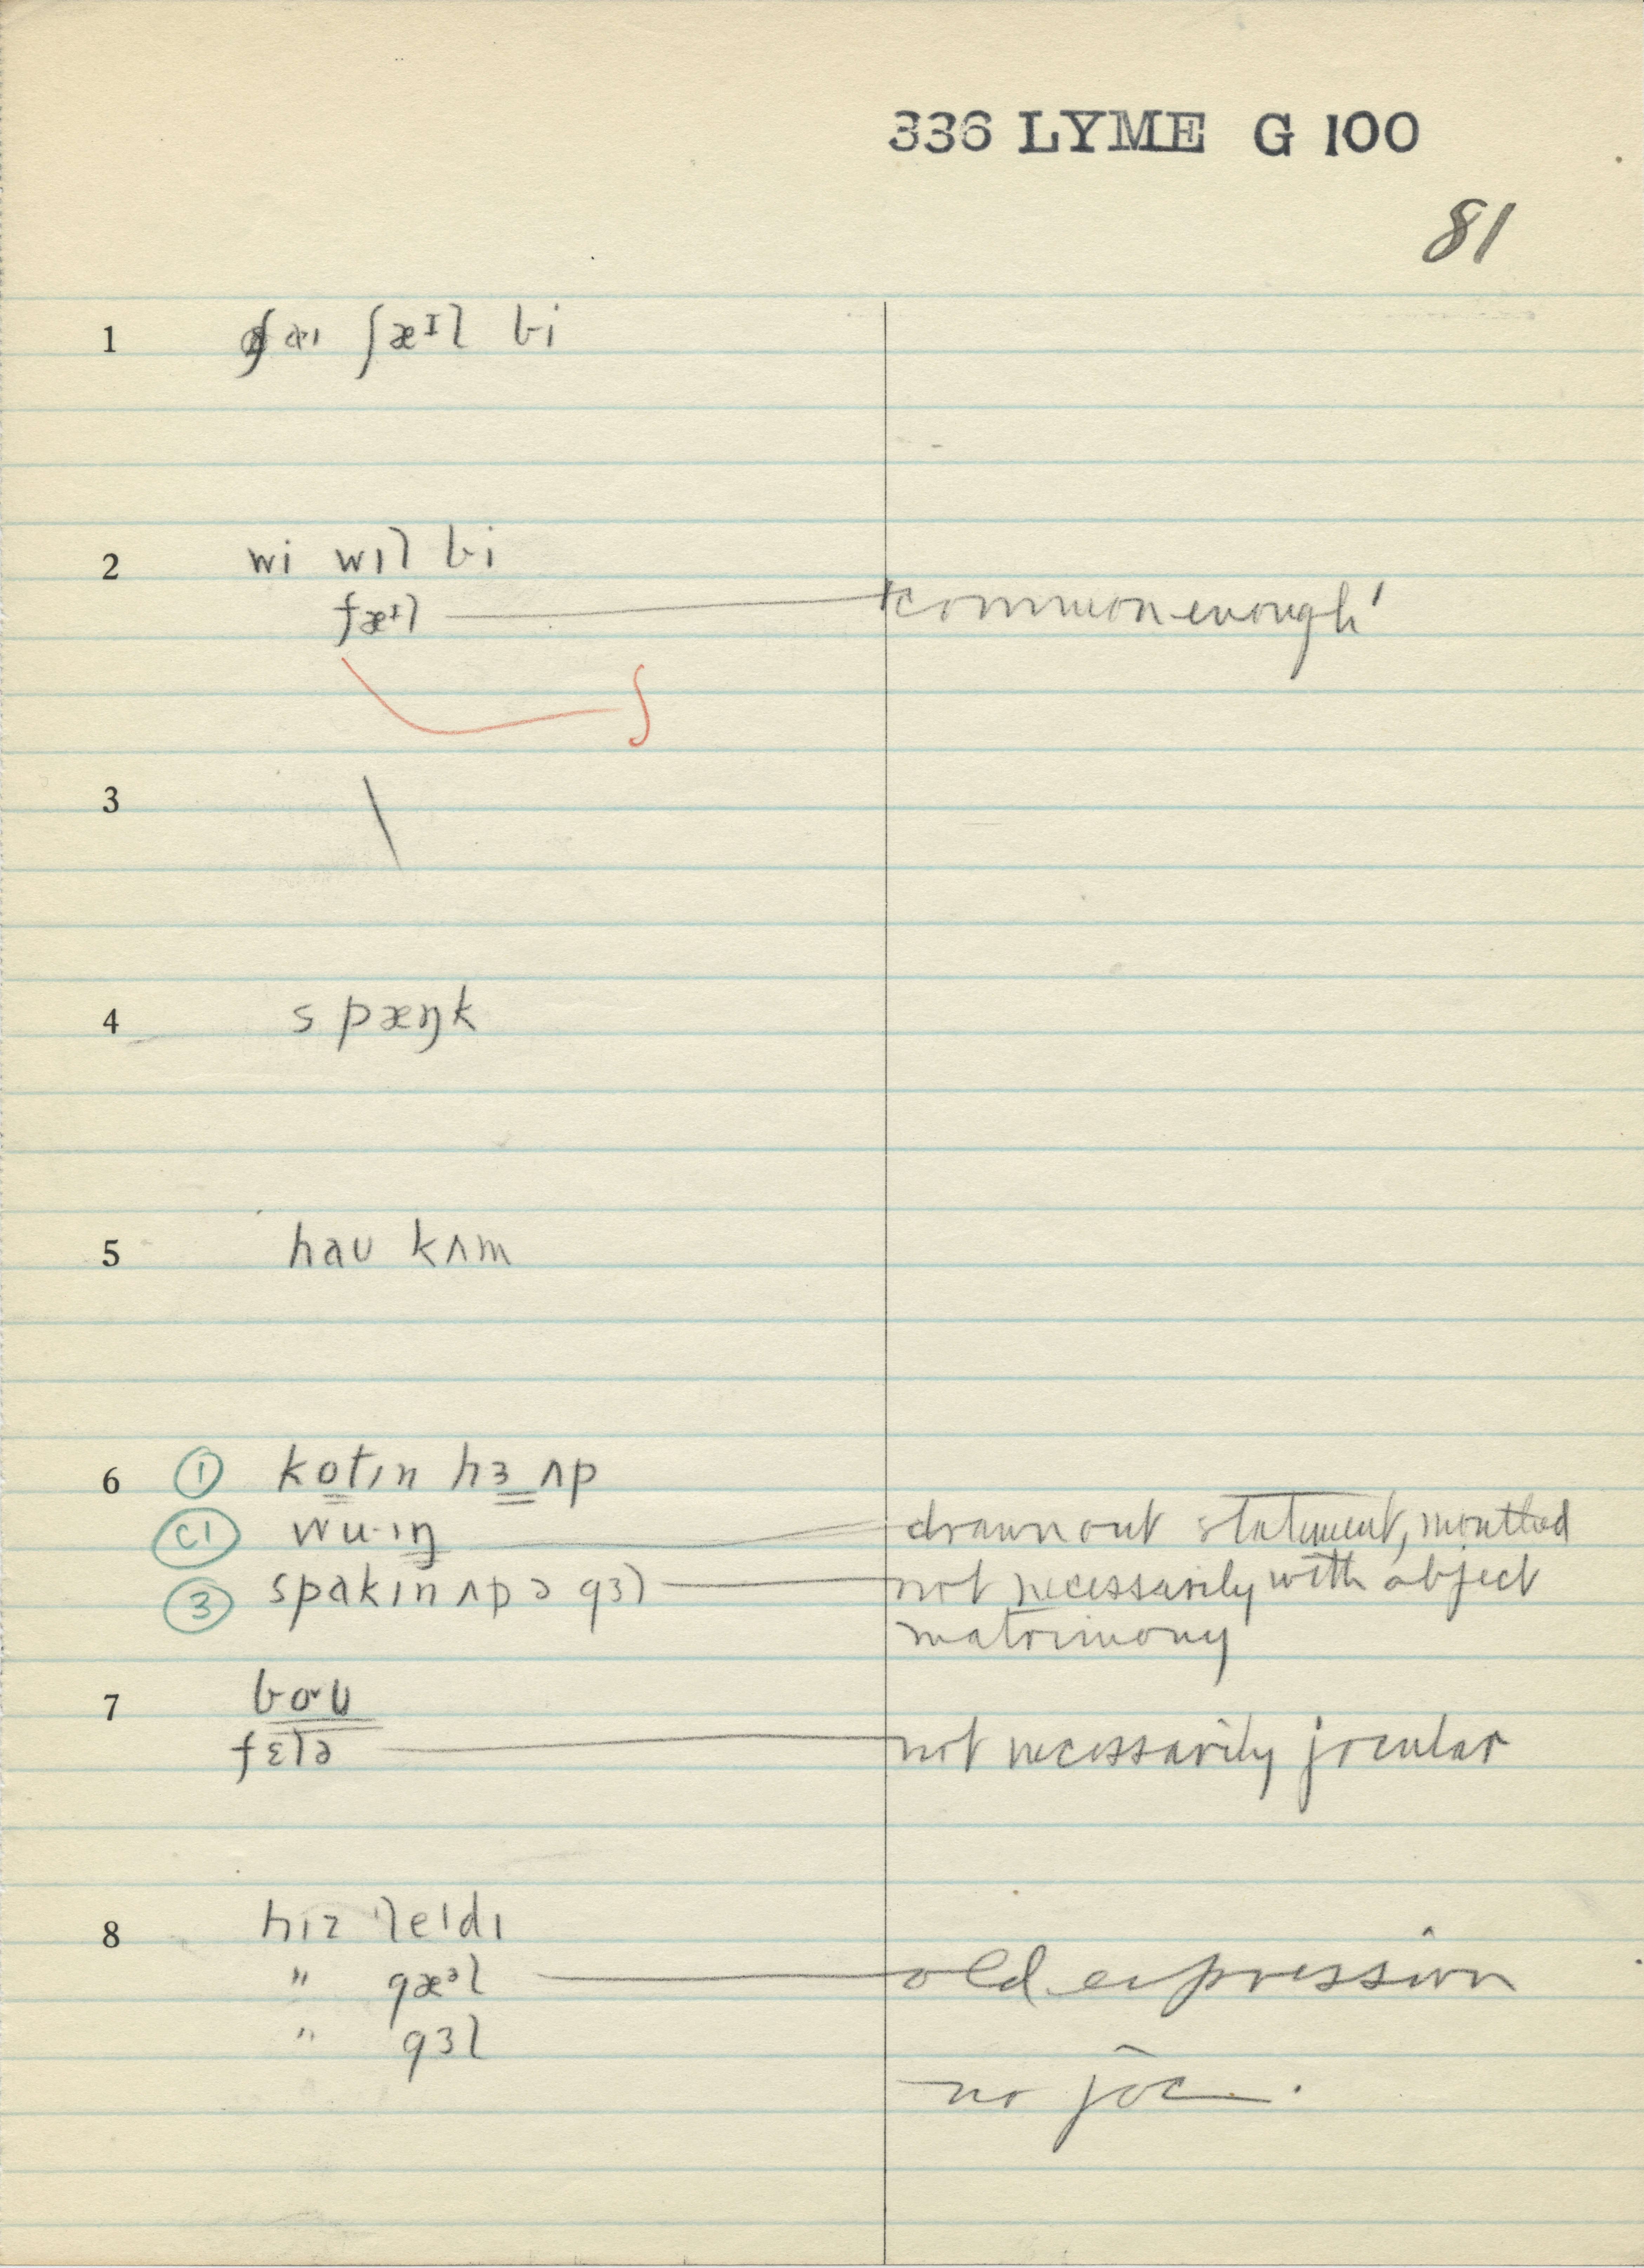 336 LYME G 100
81
1 aɪ ʃæᶦl bi
2 wi wɪl bi
ʃæᶦl 'common enough'
3 \
4 spæŋk
5 haʊ kʌm
6 ① kotɪn hɜ ʌp
C1 wu·ɪŋ drawn out statement, method
③ spakɪn ʌp ə gɜl not necessarily with object
matrimony
7 boʊ
fɛlə not necessarily jocular
8 hɪz 'leɪdɪ
" gæᵌl old expression
" gɜl
no joc.